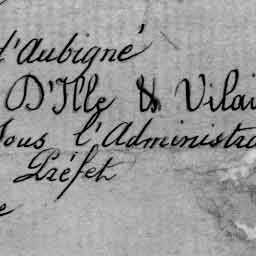 d'Aubigné
D'Ille & Vilai
Sous l'Administra
Préfet
e